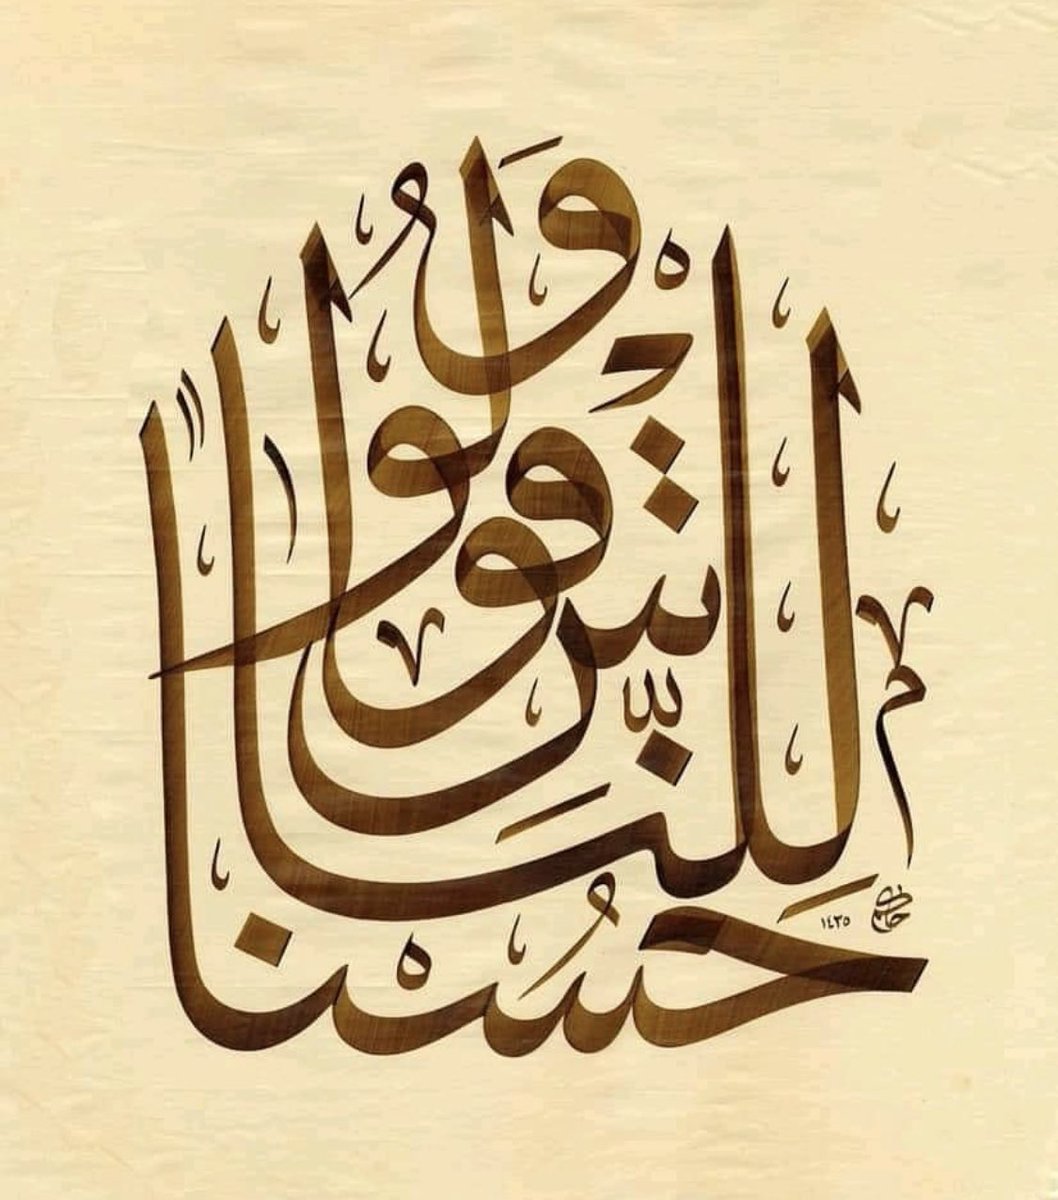 وَقُولُوا لِلنَّاسِ حُسْنًا
١٤٣٥